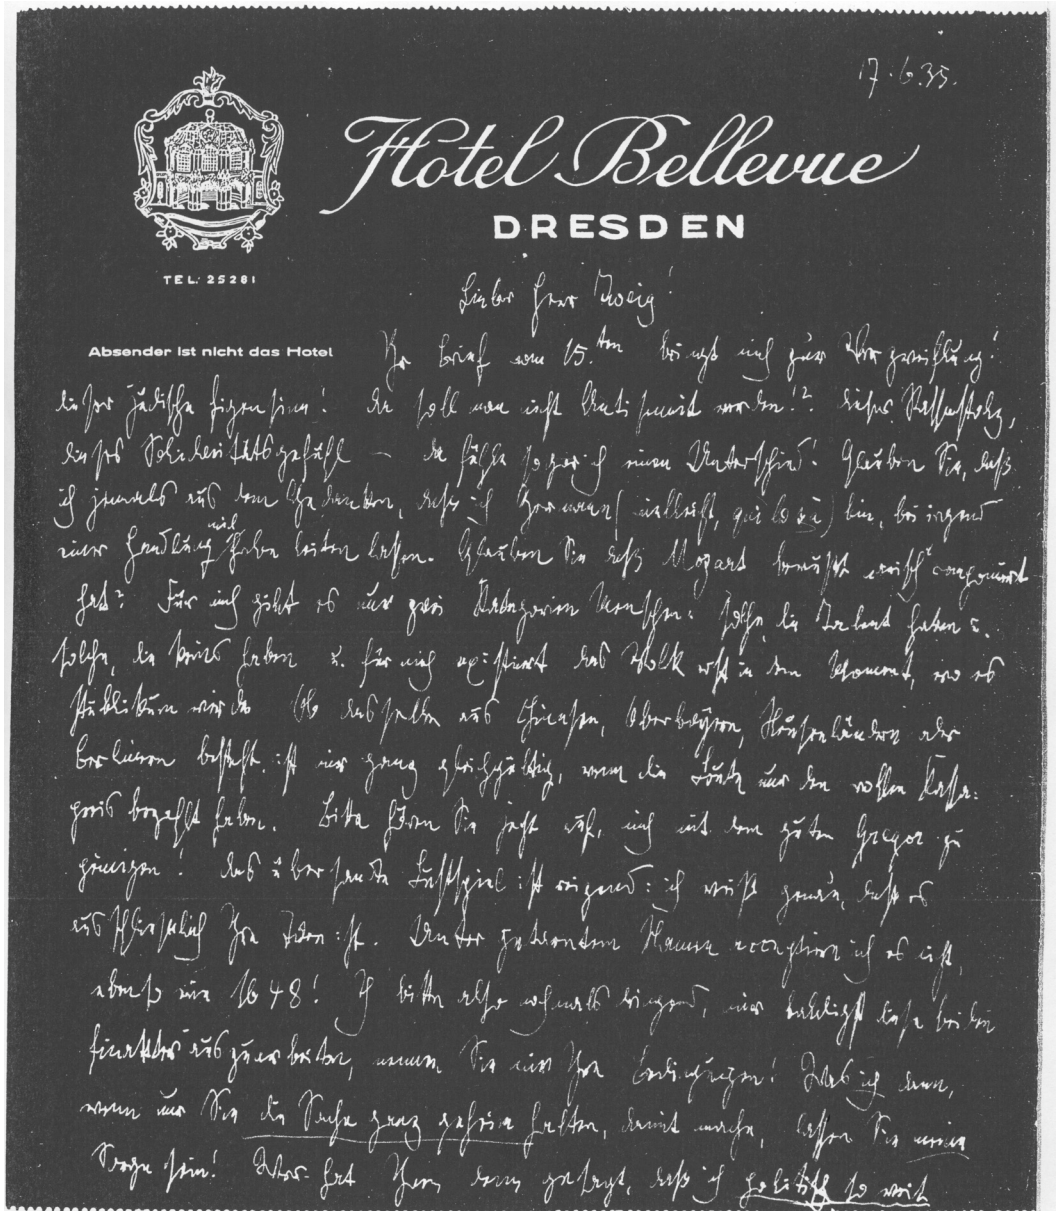 17.6.35.
Hotel Bellevue
DRESDEN
TEL: 25281
Lieber Herr Zweig!
Absender ist nicht das Hotel
Ihr Brief vom 15.ten bringt mich zur Verzweiflung!
dieser jüdische Eigensinn! da soll man nicht Antisemit werden!? dieser Rassestolz,
dieses Solidaritätsgefühl – da fühle sogar ich einen Unterschied! Glauben Sie, daß
ich jemals aus dem Gedanken, dass ich Germane (vielleicht, qui lo sà) bin, bei irgend
einer Handlung mich habe leiten lassen. Glauben Sie daß Mozart bewußt arisch componiert
hat? Für mich gibt es nur zwei Kategorien Menschen: solche, die Talent haben u.
solche, die keins haben u. für mich existiert das Volk erst in dem Moment, wo es
Publikum wird. Ob dasselbe aus Chinesen, Oberbayern, Neuseeländern oder
Berlinern besteht, ist mir ganz gleichgültig, wenn die Leute nur den vollen Kassa-
preis bezahlt haben. Bitte hören Sie jetzt auf, mich mit dem guten Gregor zu
peinigen! das übersandte Lustspiel ist reizend: ich weiß genau, daß es
ausschliesslich Ihre Idee ist. Unter getarntem Namen acceptiere ich es nicht,
ebenso wie 1648! Ich bitte also nochmals dringend, mir baldigst diese beiden
Einakter auszuarbeiten, nennen Sie mir Ihre Bedingungen! Was ich dann,
wenn nur Sie die Sache ganz geheim halten, damit mache, lassen Sie meine
Sorge sein! Wer hat Ihnen denn gesagt, daß ich politisch so weit